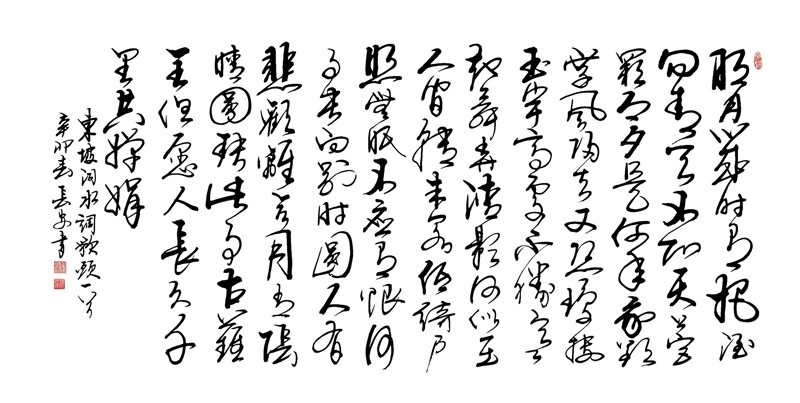 明月幾時有把酒
問青天不知天上宮
闕今夕是何年我欲
乘風歸去又恐瓊樓
玉宇高處不勝寒
起舞弄清影何似在
人間轉朱閣低綺戶
照無眠不應有恨何
事長向別時圓人有
悲歡離合月有陰
晴圓缺此事古難
全但願人長久千
里共嬋娟
東坡詞水調歌頭一首
辛卯春長安書